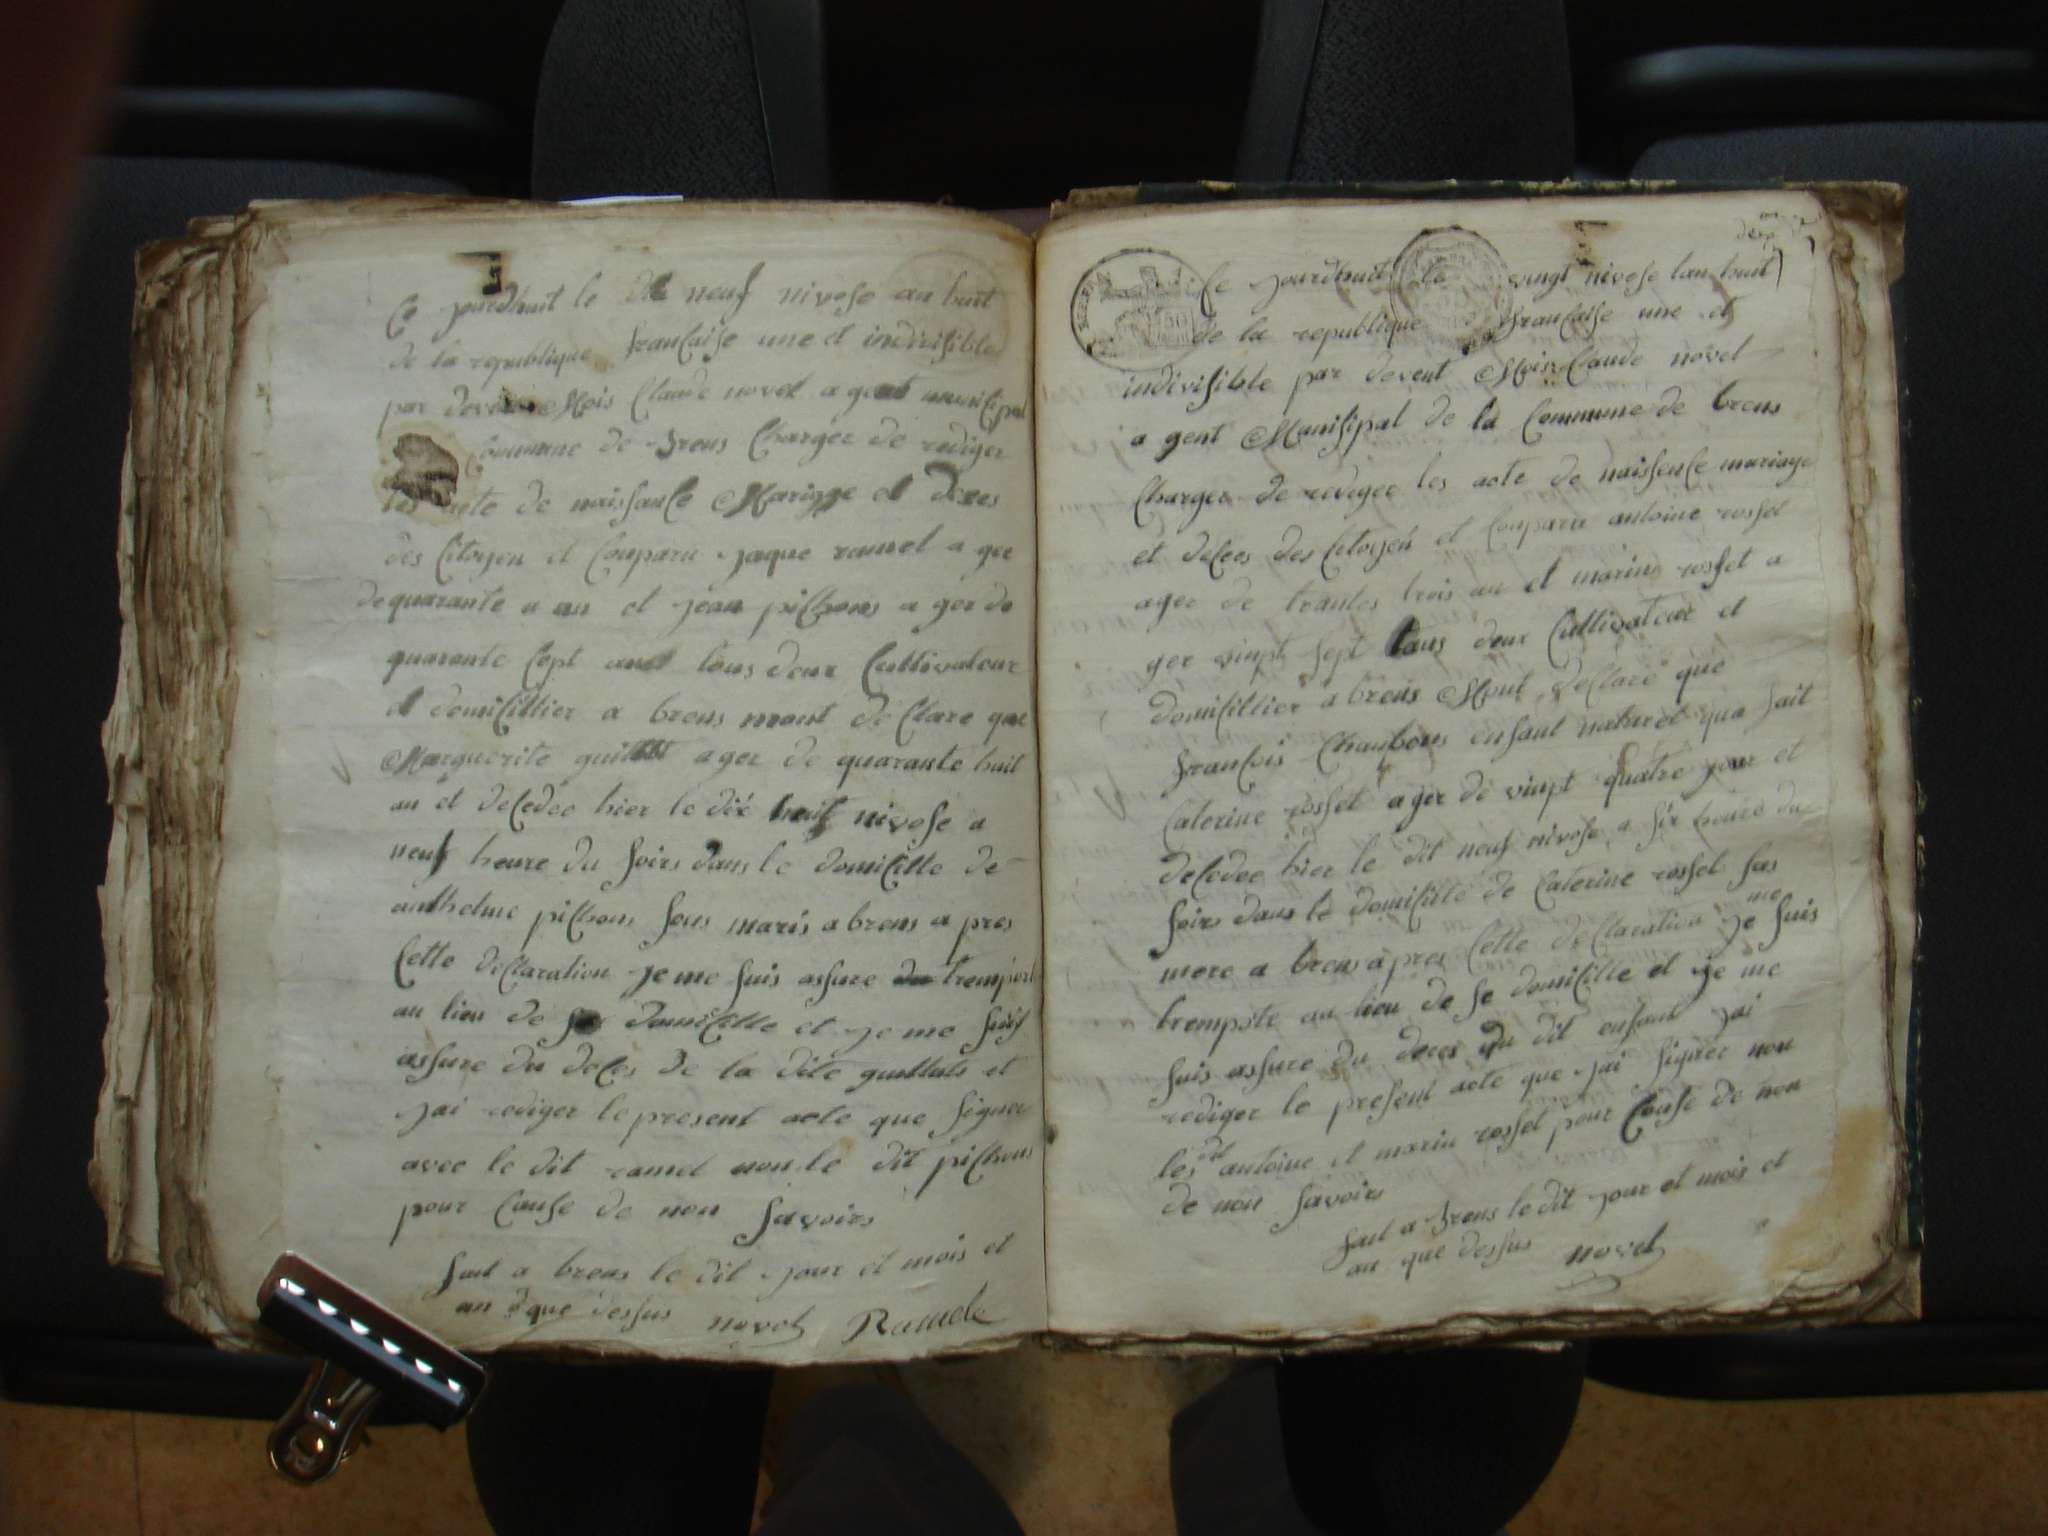 Ce jourdhuit le dit neuf nivose an huit
de la republique francaise une et indivisible
par devant Mois Claude novel agent municipal
Commune de brens Charger de rediger
les acte de naissance Mariage et deces
des Citoyen et Comparu jaque ramel a ger
de quarante a an et jean pichons a ger de
quarante sept ans tous deux Cultivateur
et domicillier a brens mont de Clare que
Marguerite ager de quarante huit
an et decedee hier le dix huit nivose a
neuf heure du soirs dans le domicille de
anthelme pichons sons maris a brens a pres
Cette declaration je me suis assure tremport
au lieu de domicille et je me suis
assure du deces de la dite et
jai rediger le present acte que signer
avec le dit ramel non le dit pichons
pour Cause de non savoirs
fait a brens le dit jour et mois et
an que dessus novel Ramele
Ce jourdhuit le vingt nivose lan huit
de la republique francaise une et
indivisible par devent Mois Claude novel
a gent Munisipal de la Commune de brens
Charger de rediger les acte de naissence mariage
et decees des Citoyen et Comparu antoine rosset
ager de trantes trois an et marin rosset a
ger vinpt sept tous deux Cultivateur et
domicillier a brens Mont declare que
francois enfant naturel qua fait
Caterine rosset ager de vinpt quatre jour et
decedee hier le dit neuf nivose a six heure du
soirs dans le domicille de Caterine rosset sas
mere a brens apres Cette declaration je me suis
tremporte au lieu de se domicille et je me
suis assure du deces du dit enfant jai
rediger le present acte que jai signer non
les dit antoine et marin rosset pour Cause de non
de non savoirs
fait a brens le dit jour et mois et
an que dessus novel